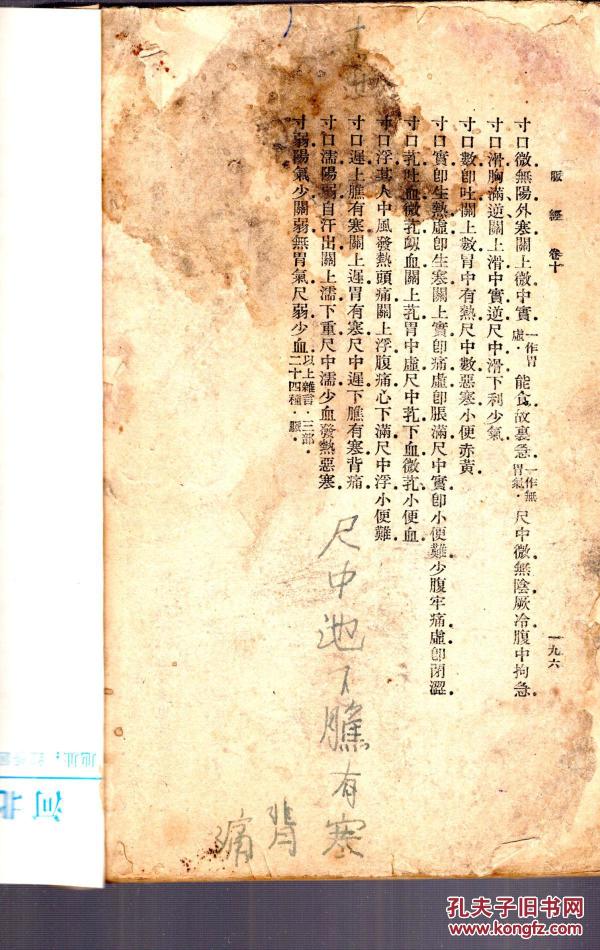 脈經 卷十
一九六
寸口微無陽外寒關上微中實一作胃虛能食故裏急一作無胃氣尺中微無陰厥冷腹中拘急
寸口滑胸滿逆關上滑中實逆尺中滑下利少氣
寸口數卽吐關上數胃中有熱尺中數惡寒小便赤黃
寸口實卽生熱虛卽生寒關上實卽痛虛卽脹滿尺中實卽小便難少腹牢痛虛卽閉澀
寸口芤吐血微芤衂血關上芤胃中虛尺中芤下血微芤小便血
寸口浮其人中風發熱頭痛關上浮腹痛心下滿尺中浮小便難
寸口遲上膲有寒關上遲胃有寒尺中遲下膲有寒背痛
寸口濡陽弱自汗出關上濡下重尺中濡少血發熱惡寒
寸弱陽氣少關弱無胃氣尺弱少血以上雜言三部二十四種脈
尺中池下膲有寒
背
痛
河北
孔夫子旧书网
www.kongfz.com